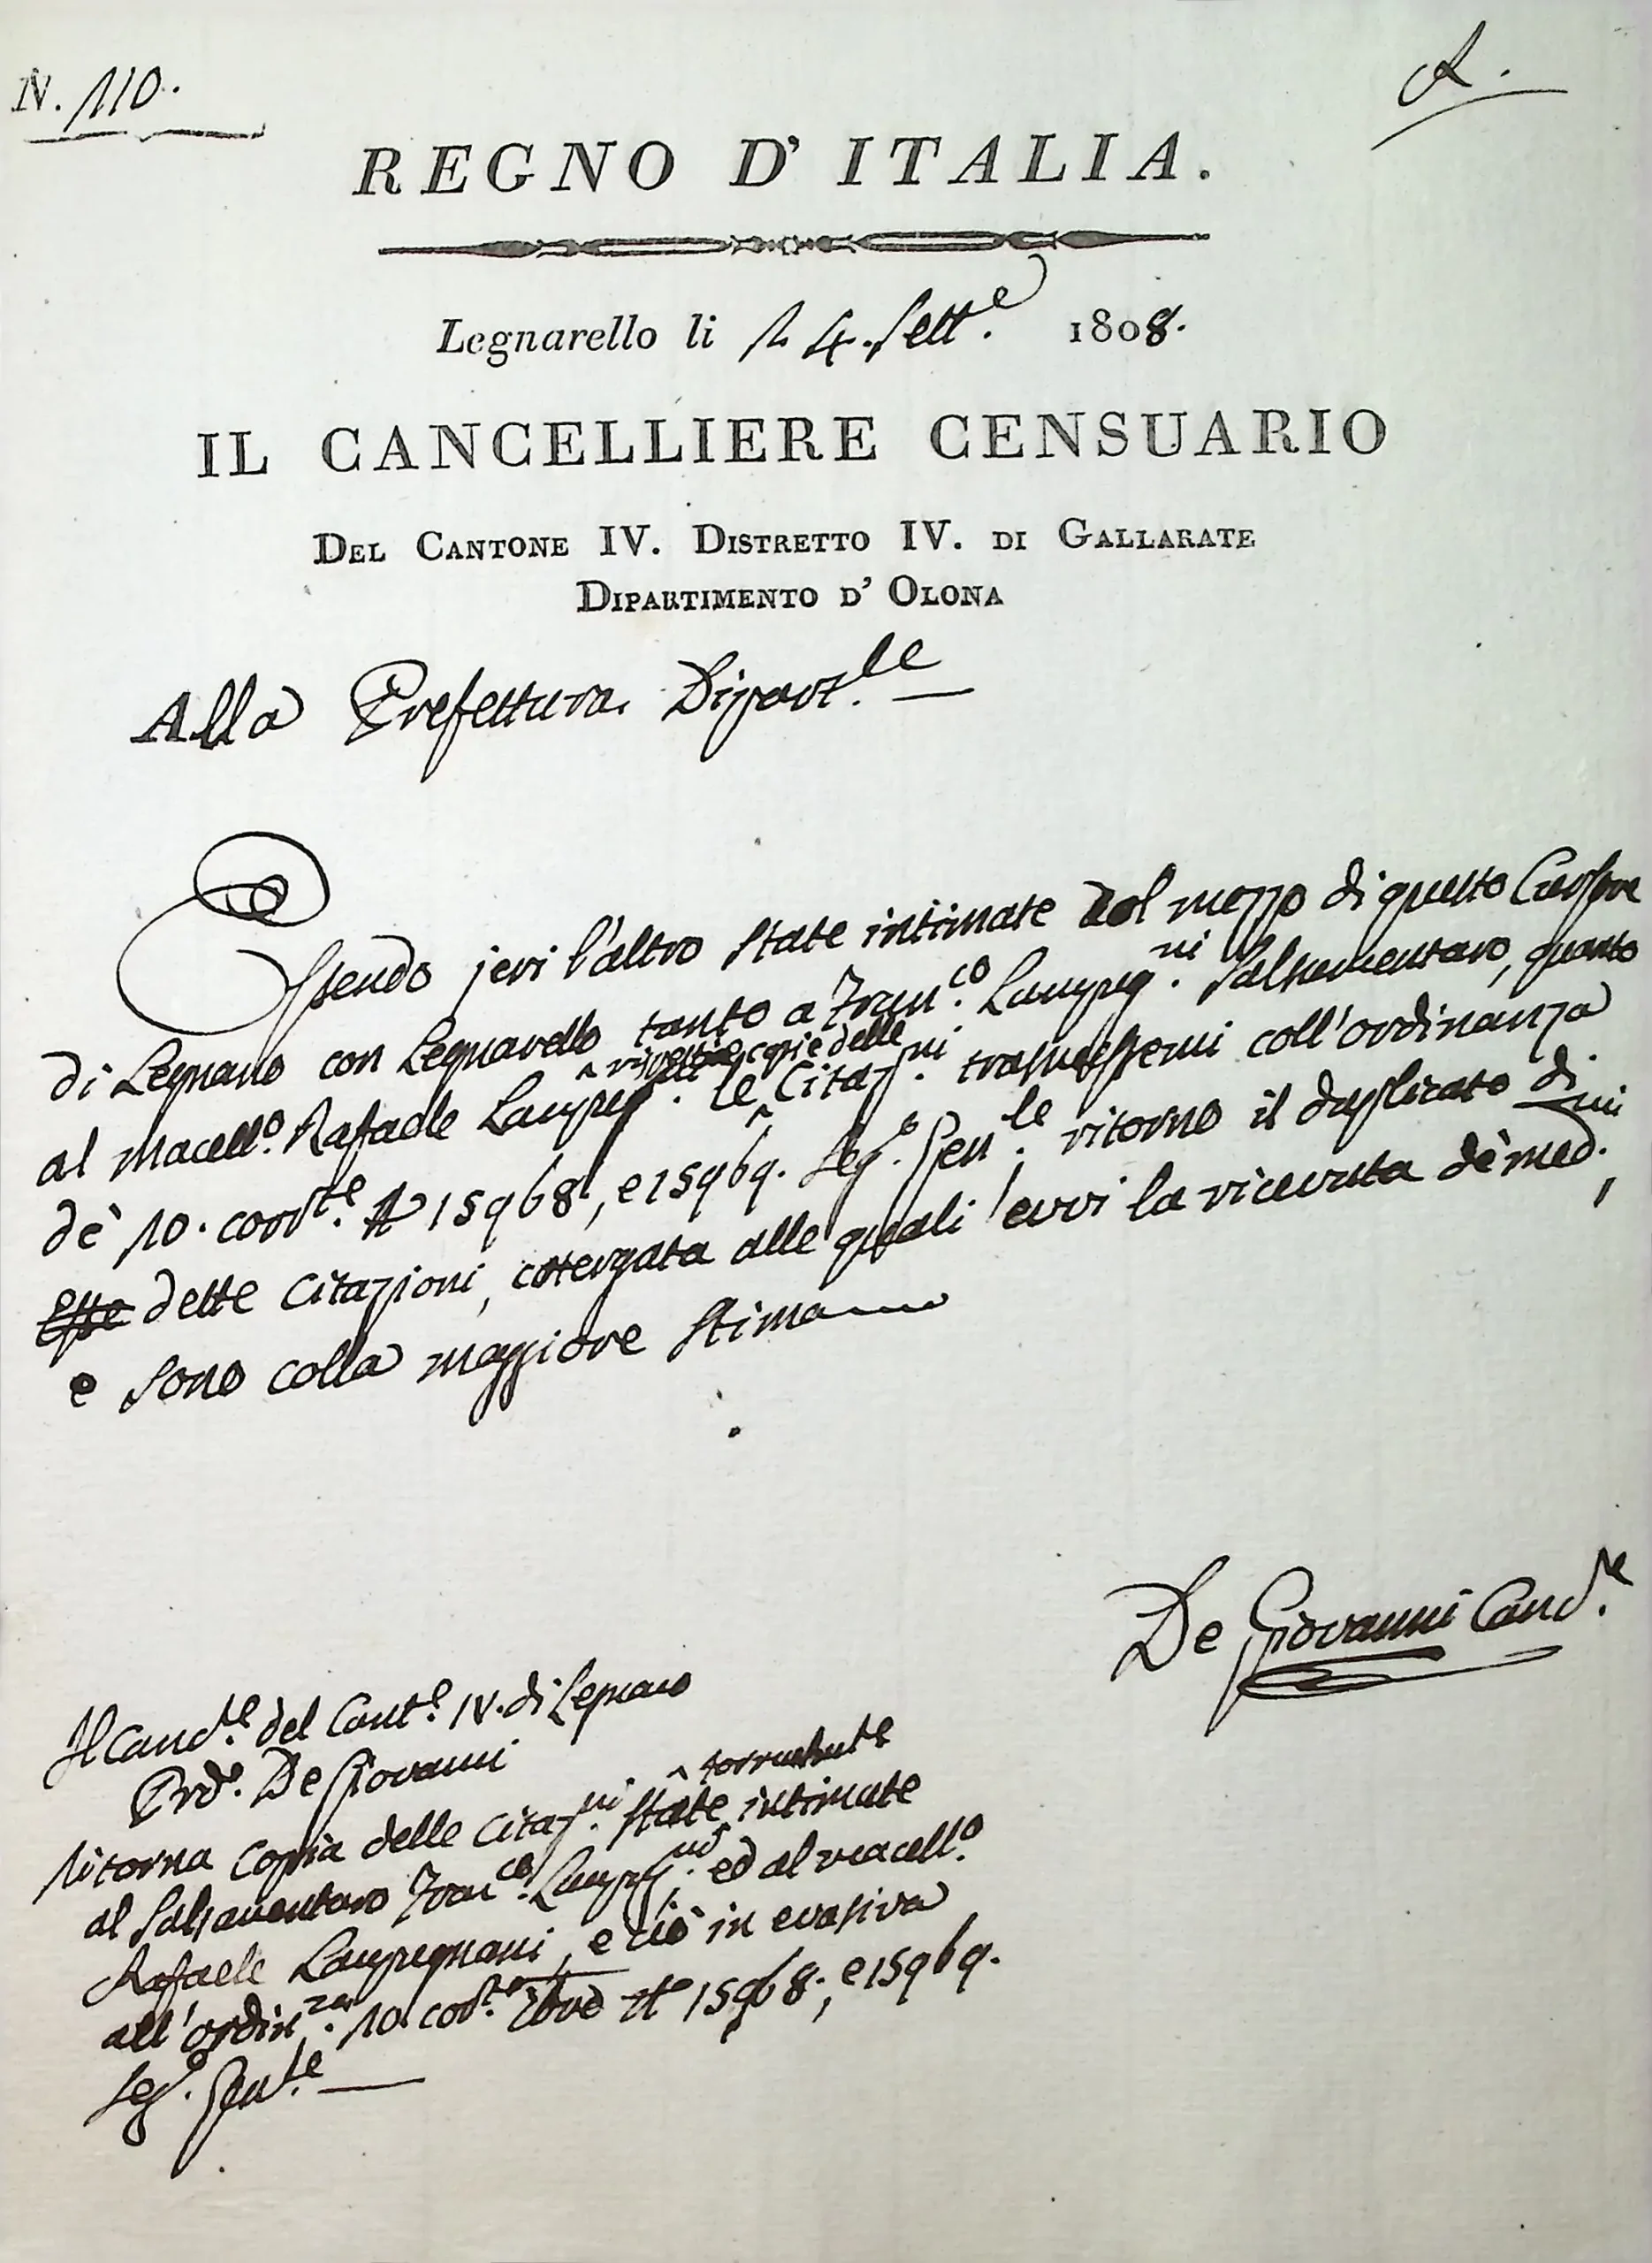 N. 110.
A.
REGNO D' ITALIA.
Legnarello li 14. Sett.e 1808.
IL CANCELLIERE CENSUARIO
DEL CANTONE IV. DISTRETTO IV. DI GALLARATE
DIPARTIMENTO D' OLONA
Alla Prefettura Dipart.le
Essendo jeri l'altro state intimate dal mezzo di questo Cursore
di Legnano con Legnarello tanto a Fran.co Lampug.ni Salsamentaro, quanto
al Macell.o Rafaele Lampug.ni rispettive copie delle
le Citaz.ni trasmessemi coll'ordinanza
de' 10. corr.te N 15968, e 15969. Seg.o Gen.le, ritorno il duplicato di
Esse dette Citazioni, attergata alle quali evvi la ricevuta de' med.mi,
e sono colla maggiore stima
De Giovanni Canc.re
Il Canc.re del Cant.e IV. di Legnano
Prd.o De Giovanni
Ritorna Copia delle Citaz.ni state intimate
al Salsamentaro Fran.co Lampug.ni ed al macell.o
Rafaele Lampugnani, e ciò in evasiva
all'ordin.za 10. cor.te N.o 15968., e 15969.
Seg.o Gen.le